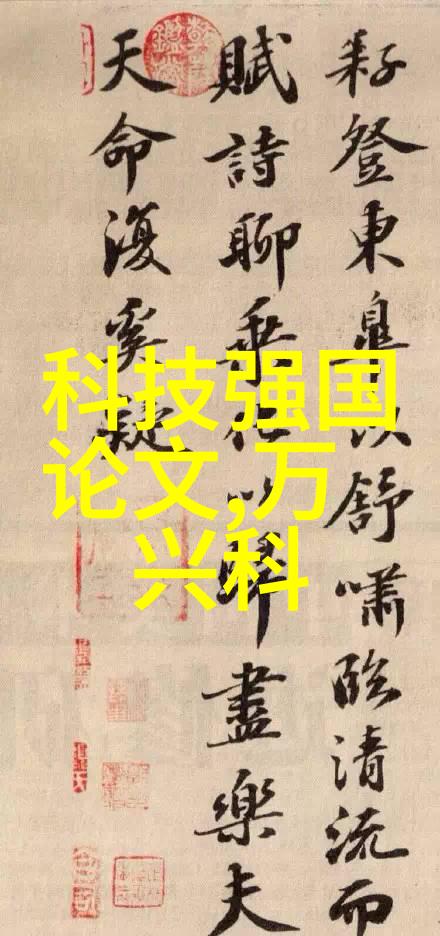 耔登東皐以舒嘯臨清流而
賦詩聊乘化以歸盡樂夫
天命復奚疑
科技强国
论文,万
兴科